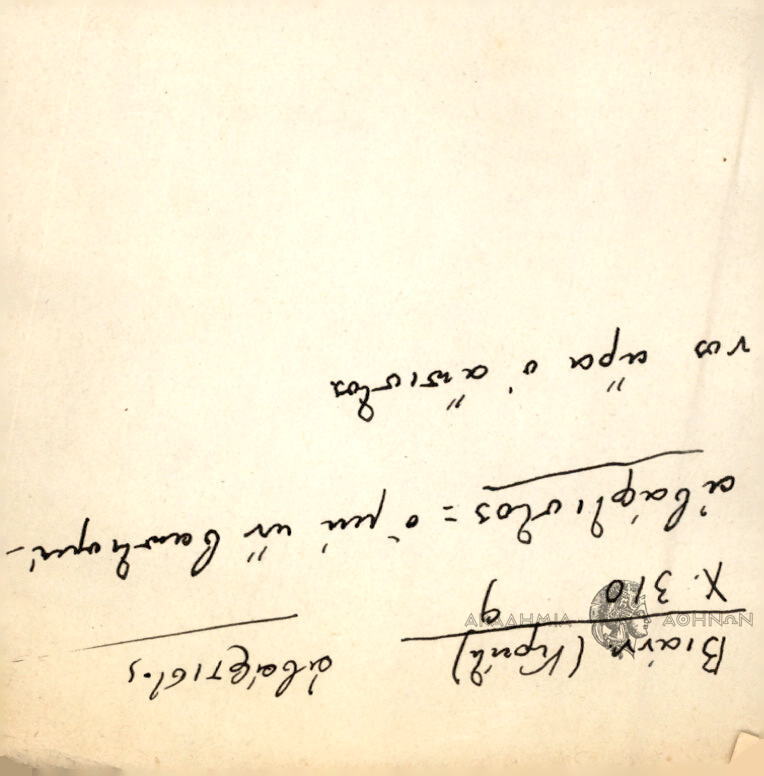 Βιάνν. (Κρήτη) ἀβάφτιστος
Χ. 310 9
ἀβάφτιστος = ὁ μὴ ὢν βαπτισμέ-
νος ἄρα ὁ ἄπιστος
ΑΚΑΔΗΜΙΑ ΑΘΗΝΩΝ